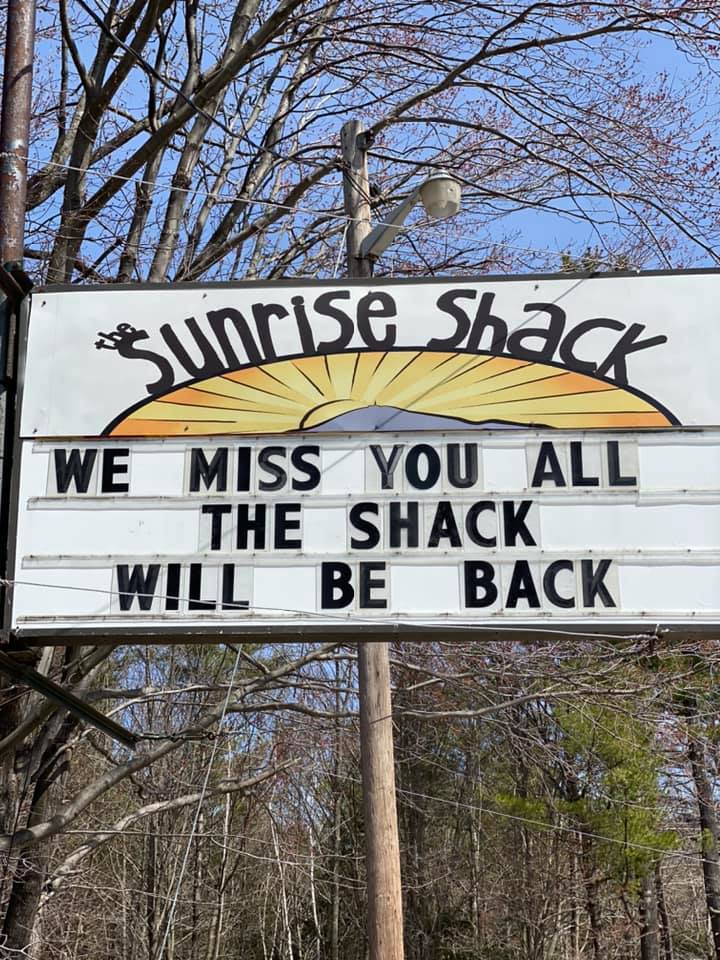 the Sunrise Shack
WE MISS YOU ALL
THE SHACK
WILL BE BACK